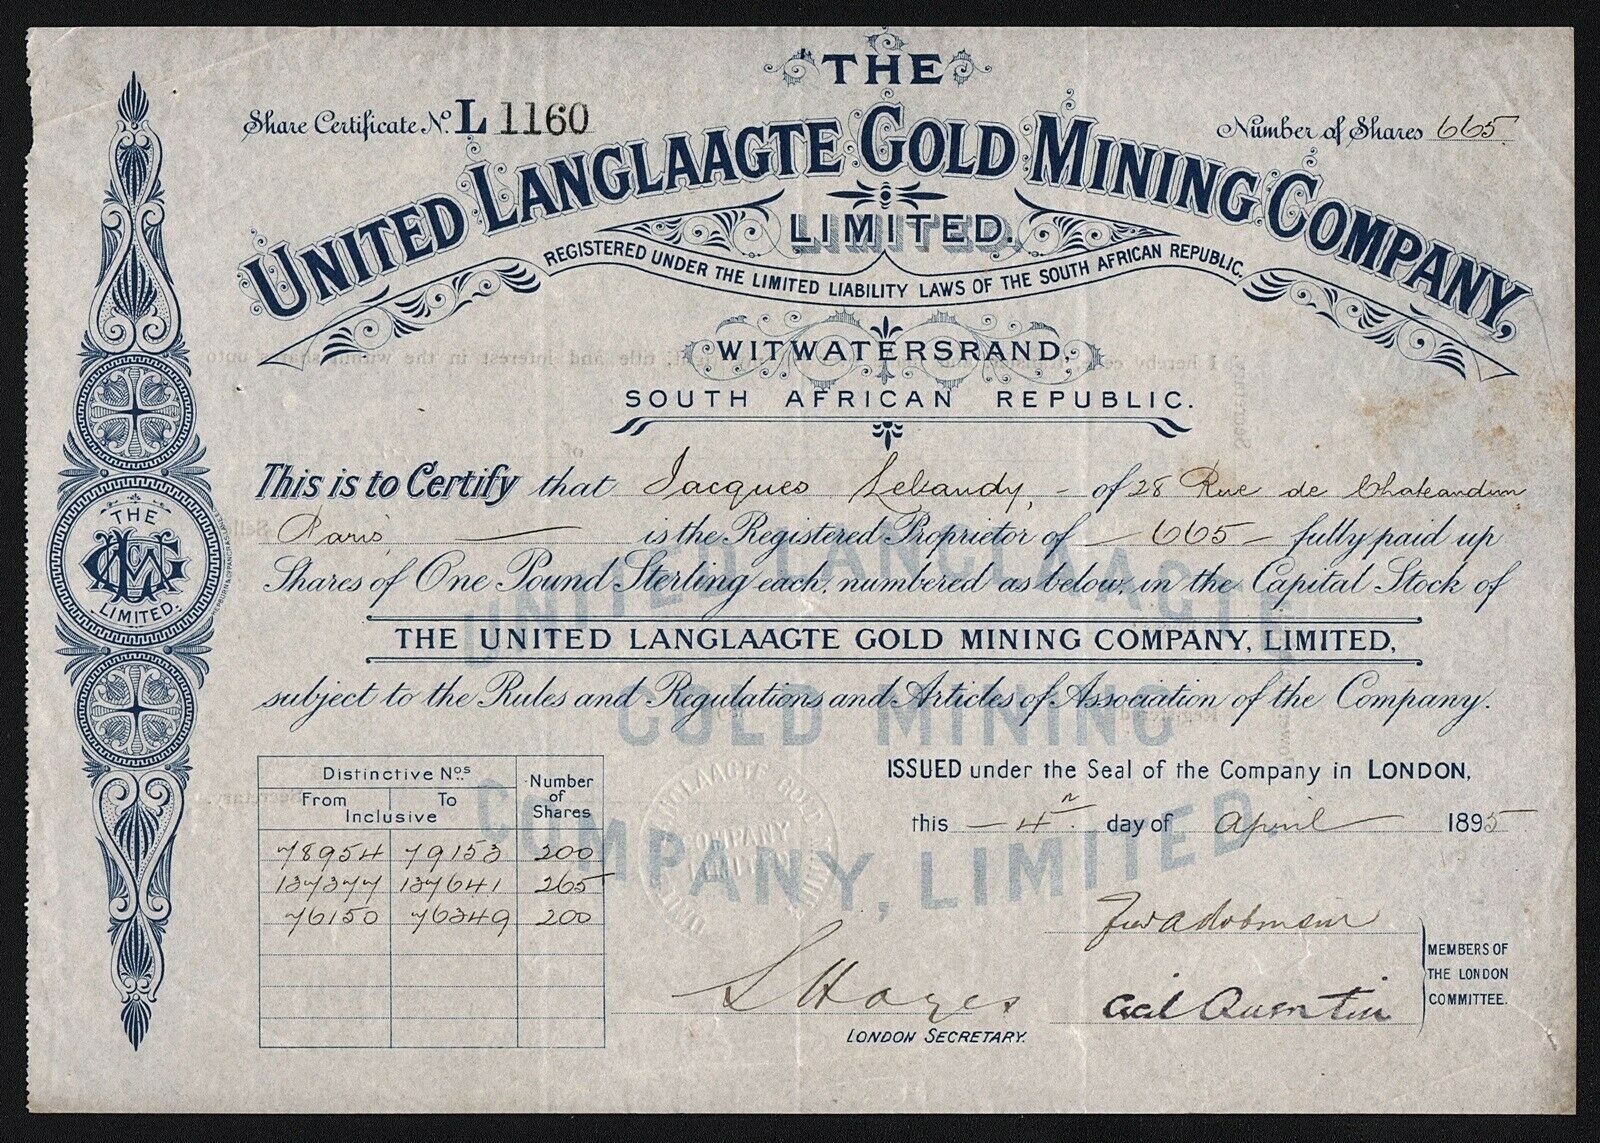 THE
Share Certificate No. L 1160
Number of Shares 665
UNITED LANGLAAGTE GOLD MINING COMPANY,
LIMITED.
REGISTERED UNDER THE LIMITED LIABILITY LAWS OF THE SOUTH AFRICAN REPUBLIC.
WITWATERSRAND,
SOUTH AFRICAN REPUBLIC.
This is to Certify that Jacques Lebaudy, - of 28 Rue de Chateaudun
Paris, — is the Registered Proprietor of - 665 - fully paid up
Shares of One Pound Sterling each, numbered as below, in the Capital Stock of
THE UNITED LANGLAAGTE GOLD MINING COMPANY, LIMITED,
subject to the Rules and Regulations and Articles of Association of the Company.
UNITED LANGLAAGTE
GOLD MINING
COMPANY, LIMITED
THE
LIMITED.
ISSUED under the Seal of the Company in LONDON,
this - 4th day of April 1895
Distinctive Nos. Number of Shares
From To
Inclusive
78954 79153 200
137377 137641 265
76150 76349 200
Cecil Quentin
MEMBERS OF
THE LONDON
COMMITTEE.
LONDON SECRETARY.